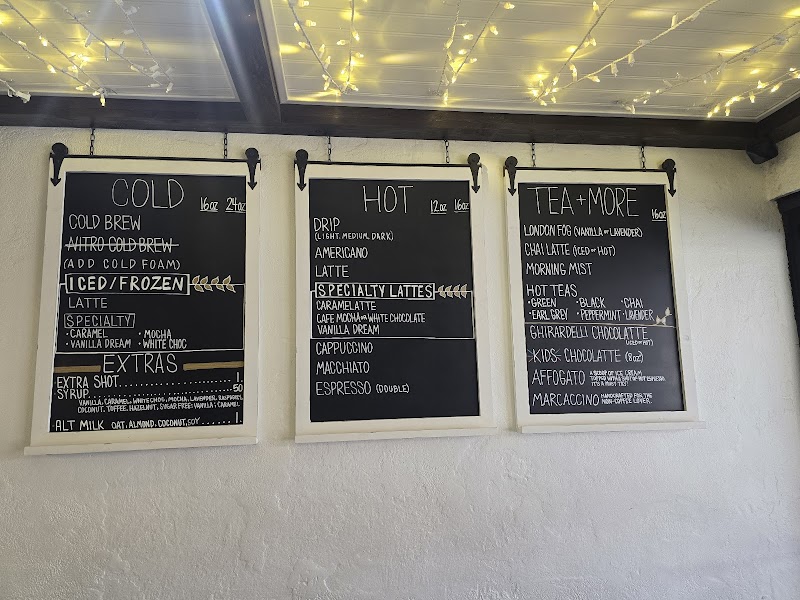 COLD 16oz 24oz
COLD BREW
NITRO COLD BREW
(ADD COLD FOAM)
ICED/FROZEN
LATTE
SPECIALTY
• CARAMEL • MOCHA
• VANILLA DREAM • WHITE CHOC
EXTRAS
EXTRA SHOT 1
SYRUP .50
VANILLA, CARAMEL, WHITE CHOC, MOCHA, LAVENDER, RASPBERRY,
COCONUT, TOFFEE, HAZELNUT, SUGAR FREE: VANILLA, CARAMEL
ALT MILK OAT, ALMOND, COCONUT, SOY 1
HOT 12oz 16oz
DRIP
(LIGHT, MEDIUM, DARK)
AMERICANO
LATTE
SPECIALTY LATTES
CARAMELATTE
CAFE MOCHA OR WHITE CHOCOLATE
VANILLA DREAM
CAPPUCCINO
MACCHIATO
ESPRESSO (DOUBLE)
TEA + MORE 16oz
LONDON FOG (VANILLA OR LAVENDER)
CHAI LATTE (ICED OR HOT)
MORNING MIST
HOT TEAS
• GREEN • BLACK • CHAI
• EARL GREY • PEPPERMINT • LAVENDER
GHIRARDELLI CHOCOLATTE
(ICED OR HOT)
KIDS- CHOCOLATTE (8oz)
AFFOGATO A SCOOP OF ICE CREAM
TOPPED WITH A SHOT OF HOT ESPRESSO
IT'S A MUST TRY!
MARCACCINO HANDCRAFTED FOR THE
NON-COFFEE LOVER